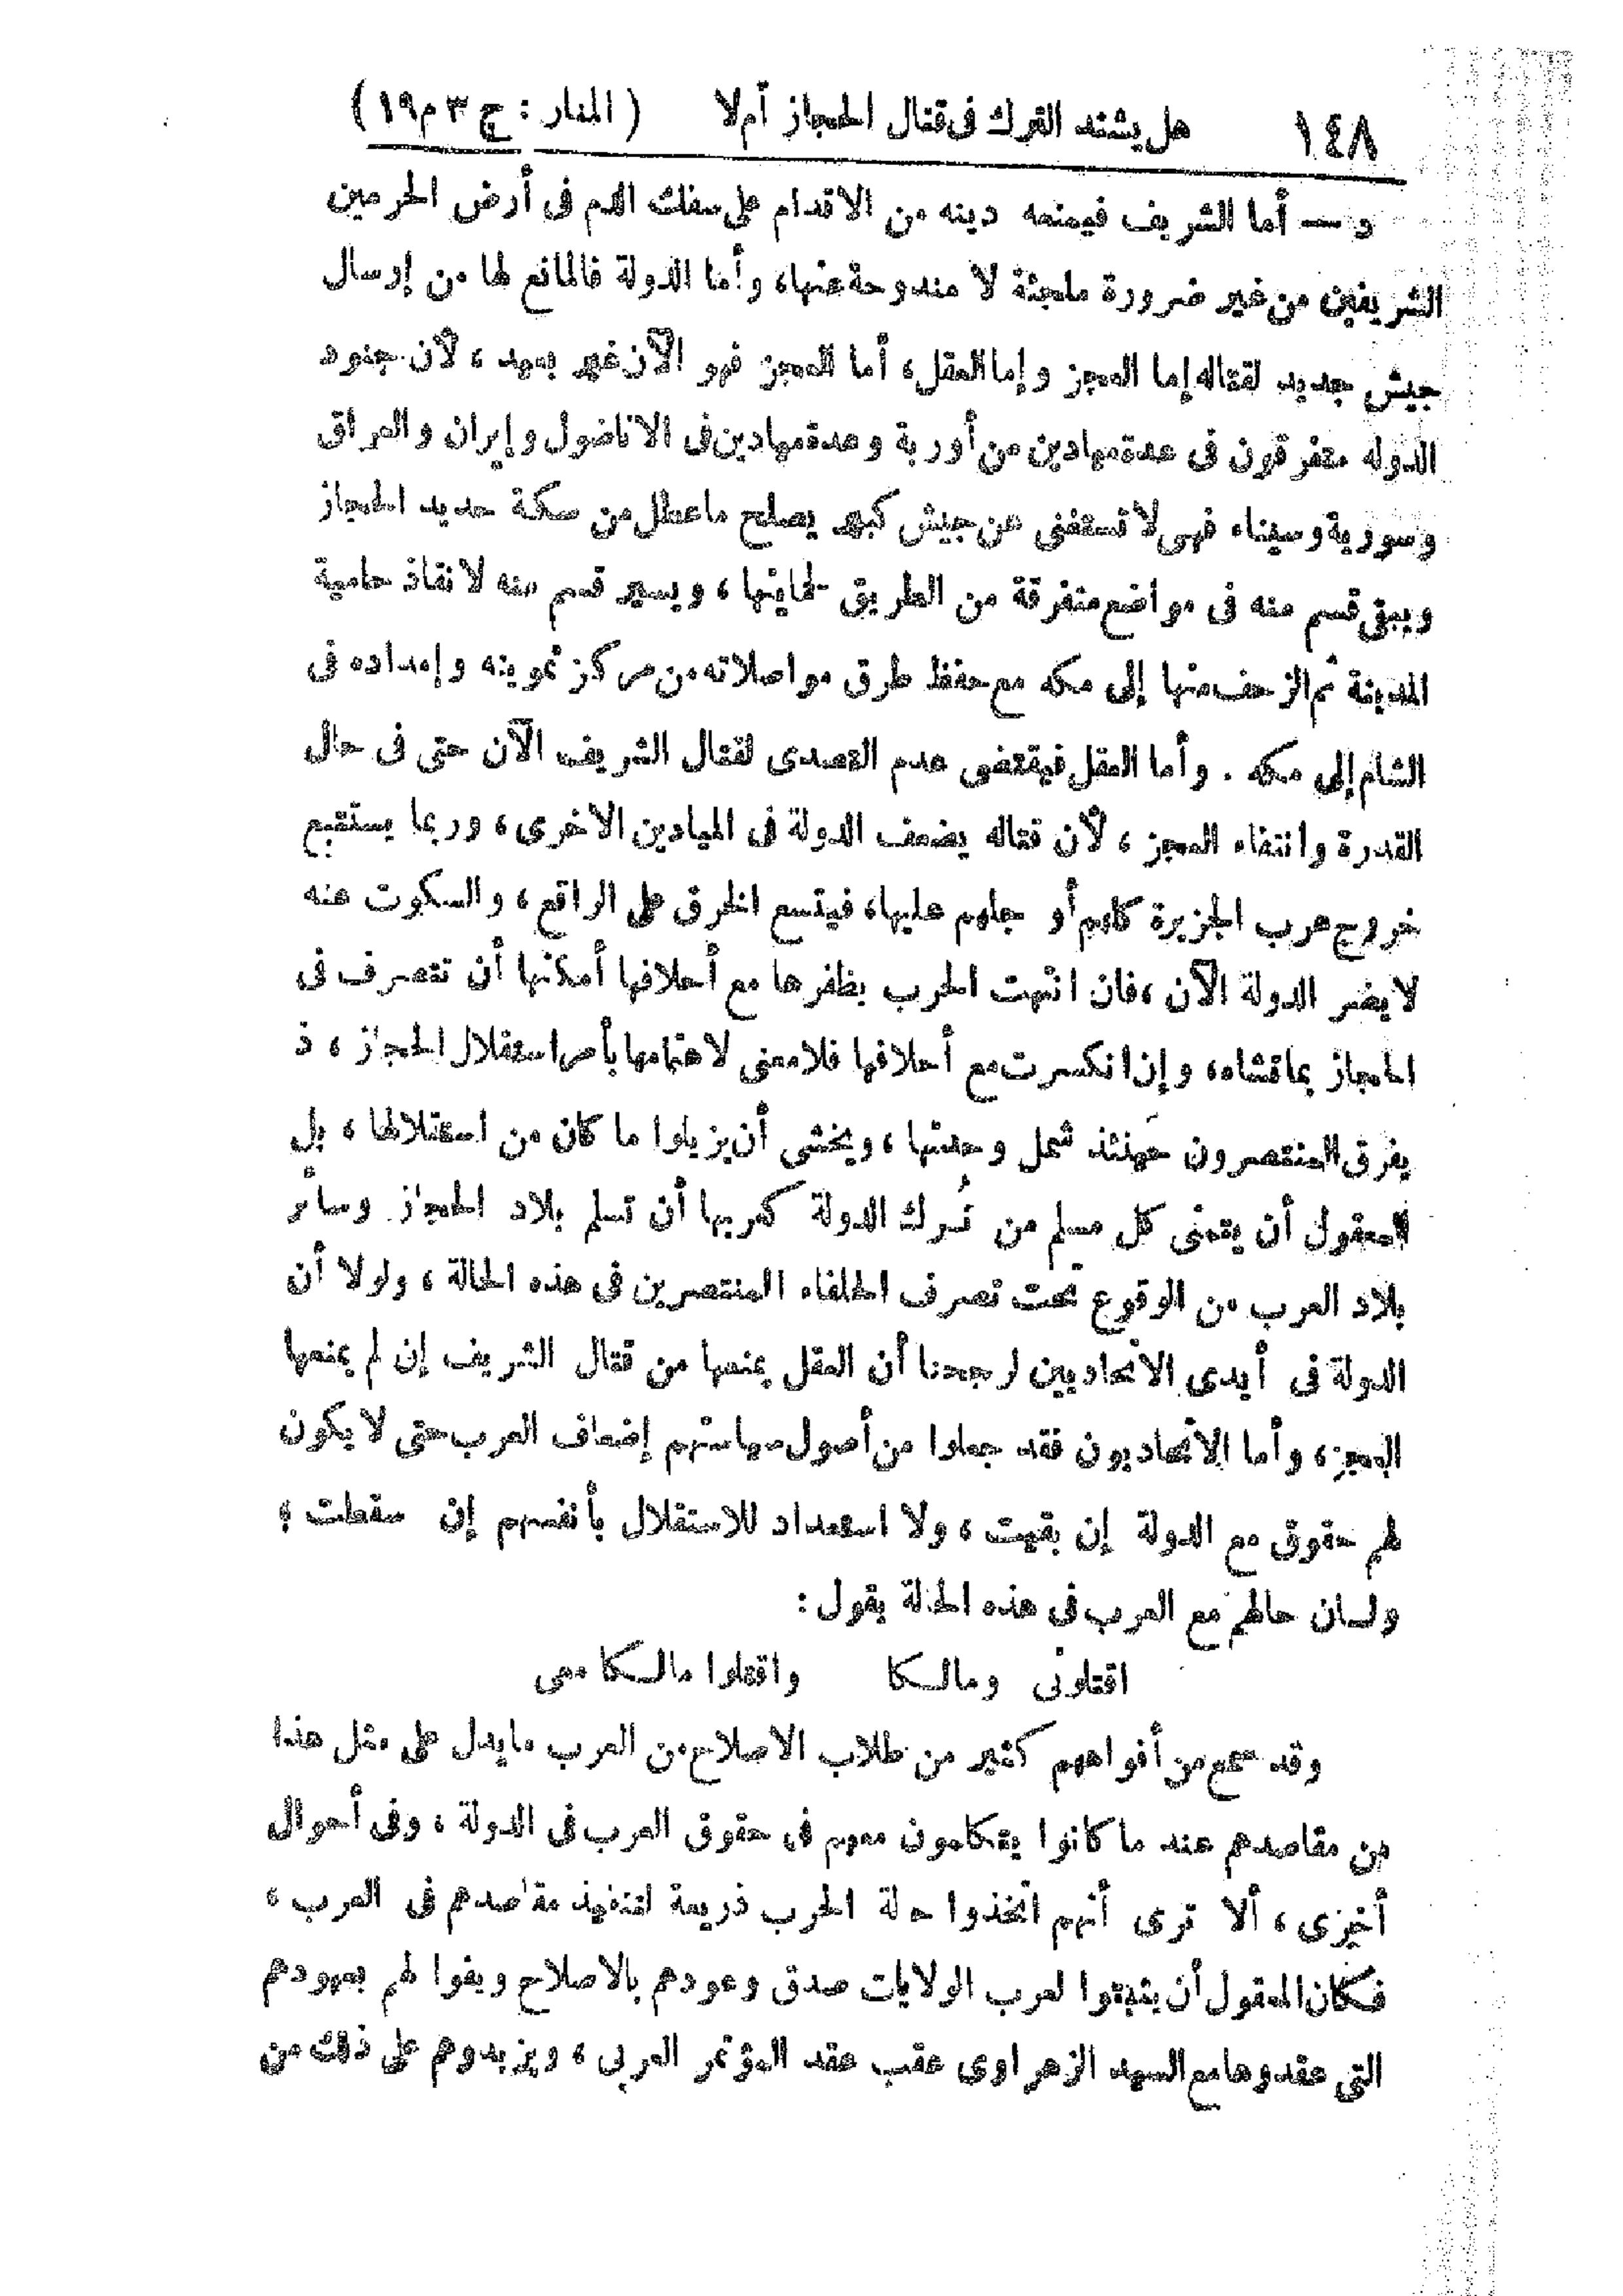 ١٤٨ هل يشتد الترك في قتال الحجاز أم لا (المنار : ج ٣ م ١٩)
د — أما الشريف فيمنعه دينه من الاقدام على سفك الدم فى أرض الحرمين
الشريفين من غير ضرورة ملجئة لا مندوحة عنها، وأما الدولة فالمانع لها من إرسال
جيش جديد لقتاله إما العجز وإما العقل، أما العجز فهو الآن غير بعيد ، لأن جنود
الدوله متفرقون فى عدة ميادين من أوربة وعدة ميادين فى الاناضول وإيران والعراق
وسورية وسيناء فهى لا تستغنى عن جيش كبير يصلح ما عطل من سكة حديد الحجاز
ويبقى قسم منه فى مواضع متفرقة من الطريق لحمايتها ، ويسير قسم منه لانقاذ حامية
المدينة ثم الزحف منها إلى مكه مع حفظ طرق مواصلاته من مركز تموينه وإمداده فى
الشام إلى مكه . وأما العقل فيقتضى عدم التصدى لقتال الشريف الآن حتى فى حال
القدرة وانتفاء العجز ، لأن قتاله يضعف الدولة فى الميادين الاخرى ، وربما يستتبع
خروج عرب الجزيرة كلهم أو جلهم عليها، فيتسع الخرق على الراقع ، والسكوت عنه
لا يضر الدولة الآن ، فان انتهت الحرب بظفرها مع أحلافها أمكنها أن تتصرف فى
الحجاز بما تشاء، وإن انكسرت مع أحلافها فلا معنى لاهتمامها بأمر استقلال الحجاز ، ذ
يفرق المنتصرون حَينئذ شمل وحدتها ، ويخشى أن يزيلوا ما كان من استقلالها ، بل
المعقول أن يتمنى كل مسلم من تُرك الدولة كعربها أن تسلم بلاد الحجاز وسائر
بلاد العرب من الوقوع تحت تصرف الحلفاء المنتصرين فى هذه الحالة ، ولولا أن
الدولة فى أيدى الاتحاديين لرجحنا أن العقل يمنعها من قتال الشريف إن لم يمنعها
العجز، وأما الاتحاديون فقد جعلوا من أصول سياستهم إضعاف العرب حتى لا يكون
لهم حقوق مع الدولة إن بقيت ، ولا استعداد للاستقلال بأنفسهم إن سقطت ؛
ولسان حالهم مع العرب فى هذه الحالة يقول :
اقتلونى ومالكا واقتلوا مالكا معى
وقد سمع من أفواههم كثير من طلاب الاصلاح من العرب ما يدل على مثل هذا
من مقاصدهم عند ما كانوا يتكلمون معهم فى حقوق العرب فى الدولة ، وفى أحوال
أخرى ، ألا ترى أنهم اتخذوا حالة الحرب ذريعة لتنفيذ مقاصدهم فى العرب ،
فكان المعقول أن يثبتوا لعرب الولايات صدق وعودهم بالاصلاح ويفوا لهم بعهودهم
التى عقدوها مع السيد الزهراوى عقب عقد المؤتمر العربى ، ويزيدوهم على ذلك من